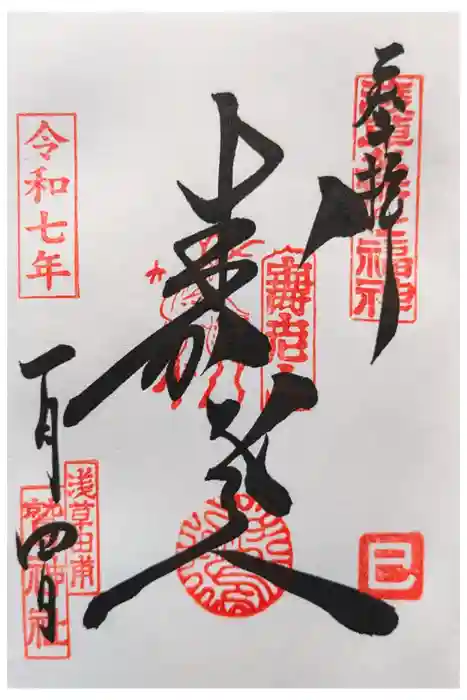 奉拝
浅草名所七福神
壽老人
壽老人
令和七年
一月四日
浅草田甫
鷲神社
巳